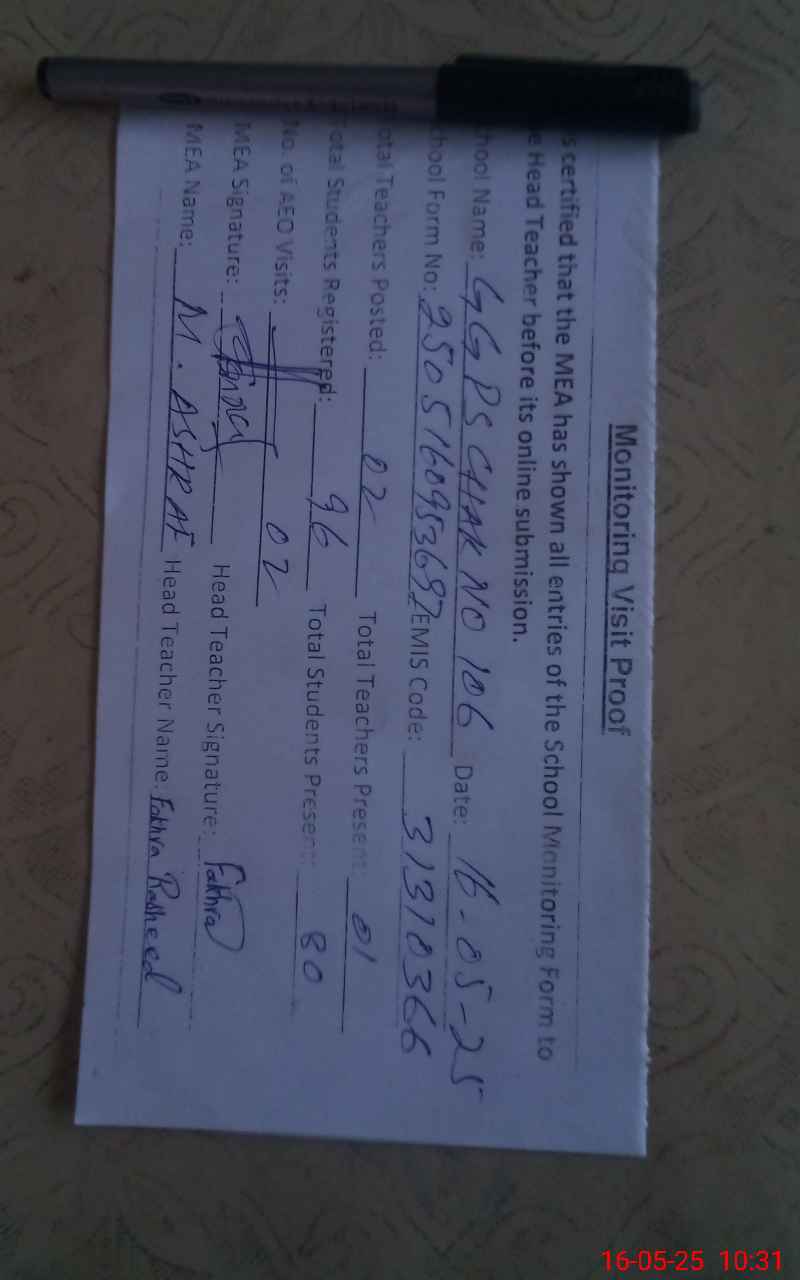 Monitoring Visit Proof
s certified that the MEA has shown all entries of the School Monitoring Form to
e Head Teacher before its online submission.
hool Name: GGPS CHAK NO 106 Date: 16-05-25
chool Form No: 2505160953692 EMIS Code: 31310366
otal Teachers Posted: 02 Total Teachers Present: 01
Total Students Registered: 96 Total Students Present: 80
No. of AEO Visits: 02
MEA Signature: Head Teacher Signature: Fakhra
MEA Name: M. ASHRAF Head Teacher Name: Fakhra Rasheed
16-05-25 10:31